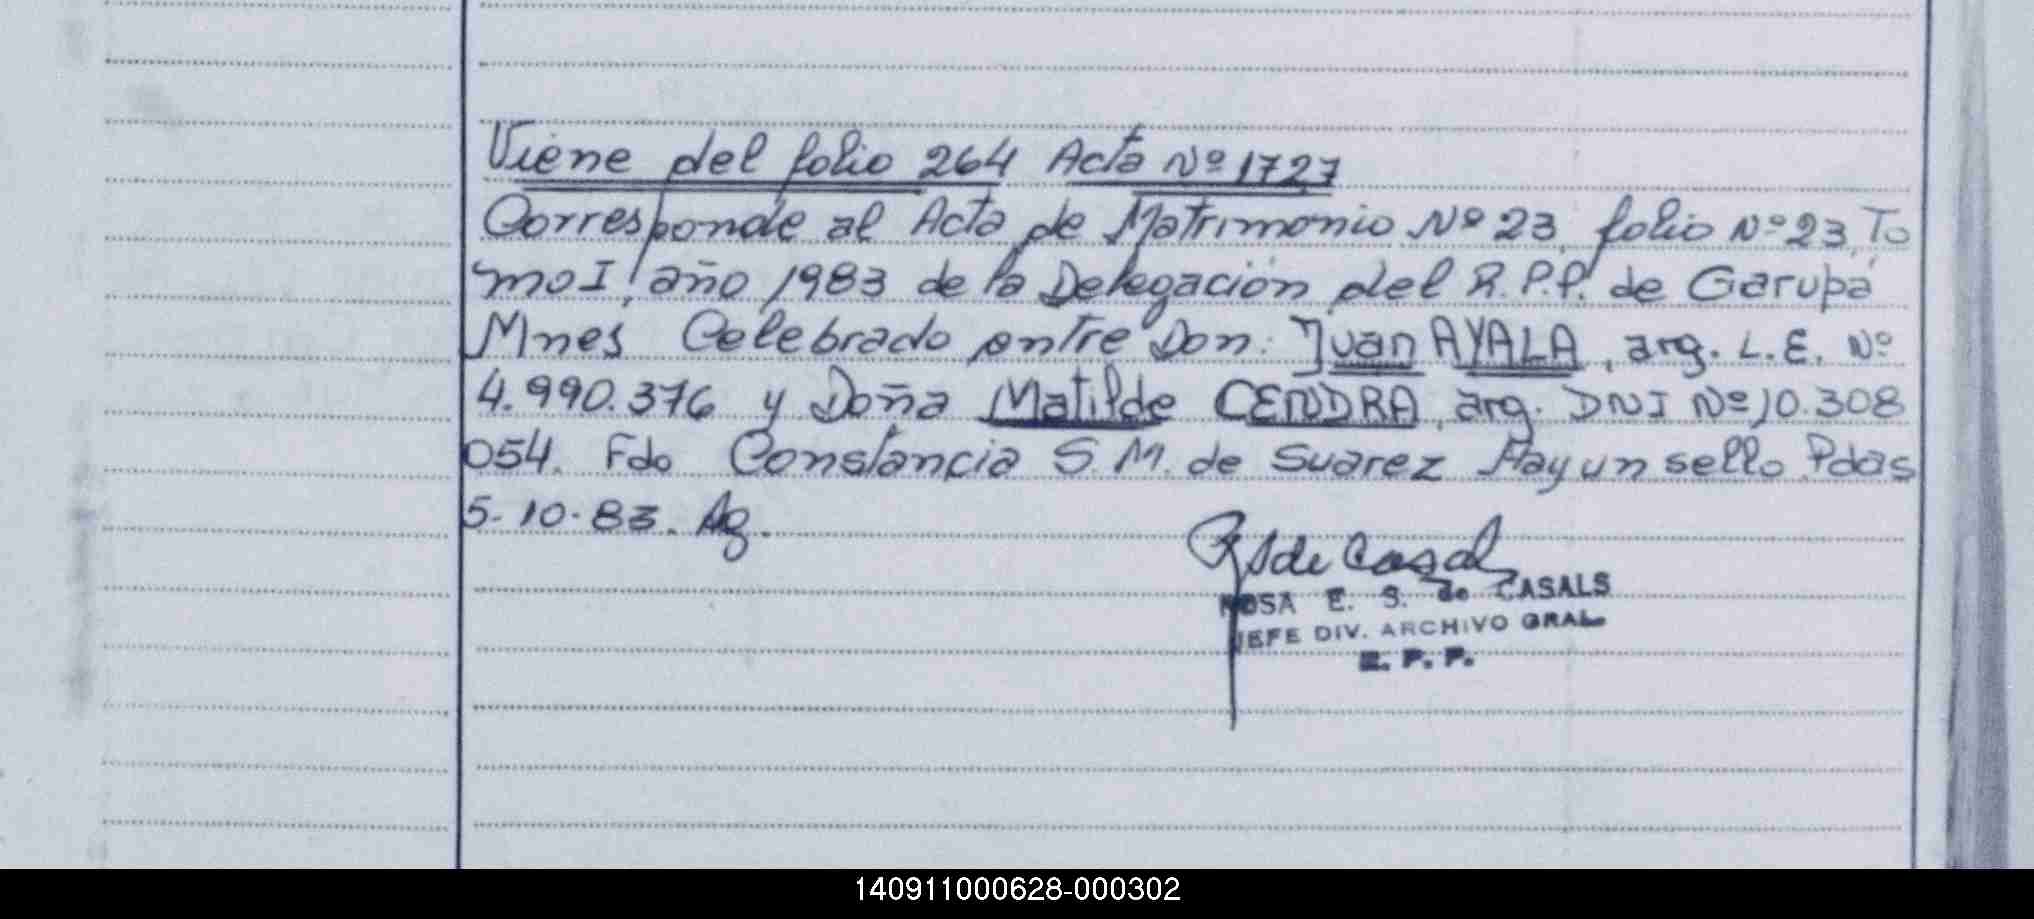 Viene del folio 264 Acta Nº 1727
Corresponde al Acta de Matrimonio Nº 23, folio Nº 23, To
mo I, año 1983 de la Delegación del R.P.P. de Garupá
Mnes Celebrado entre Don: Juan AYALA, arg. L.E. Nº
4.990.376 y Doña Matilde CENDRA, arg. DNI Nº 10.308
054. Fdo Constancia S.M. de Suarez Hay un sello. Pdas
5-10-83. Ag.
RSde Casals
ROSA E. S. de CASALS
JEFE DIV. ARCHIVO GRAL
R. P. P.
140911000628-000302